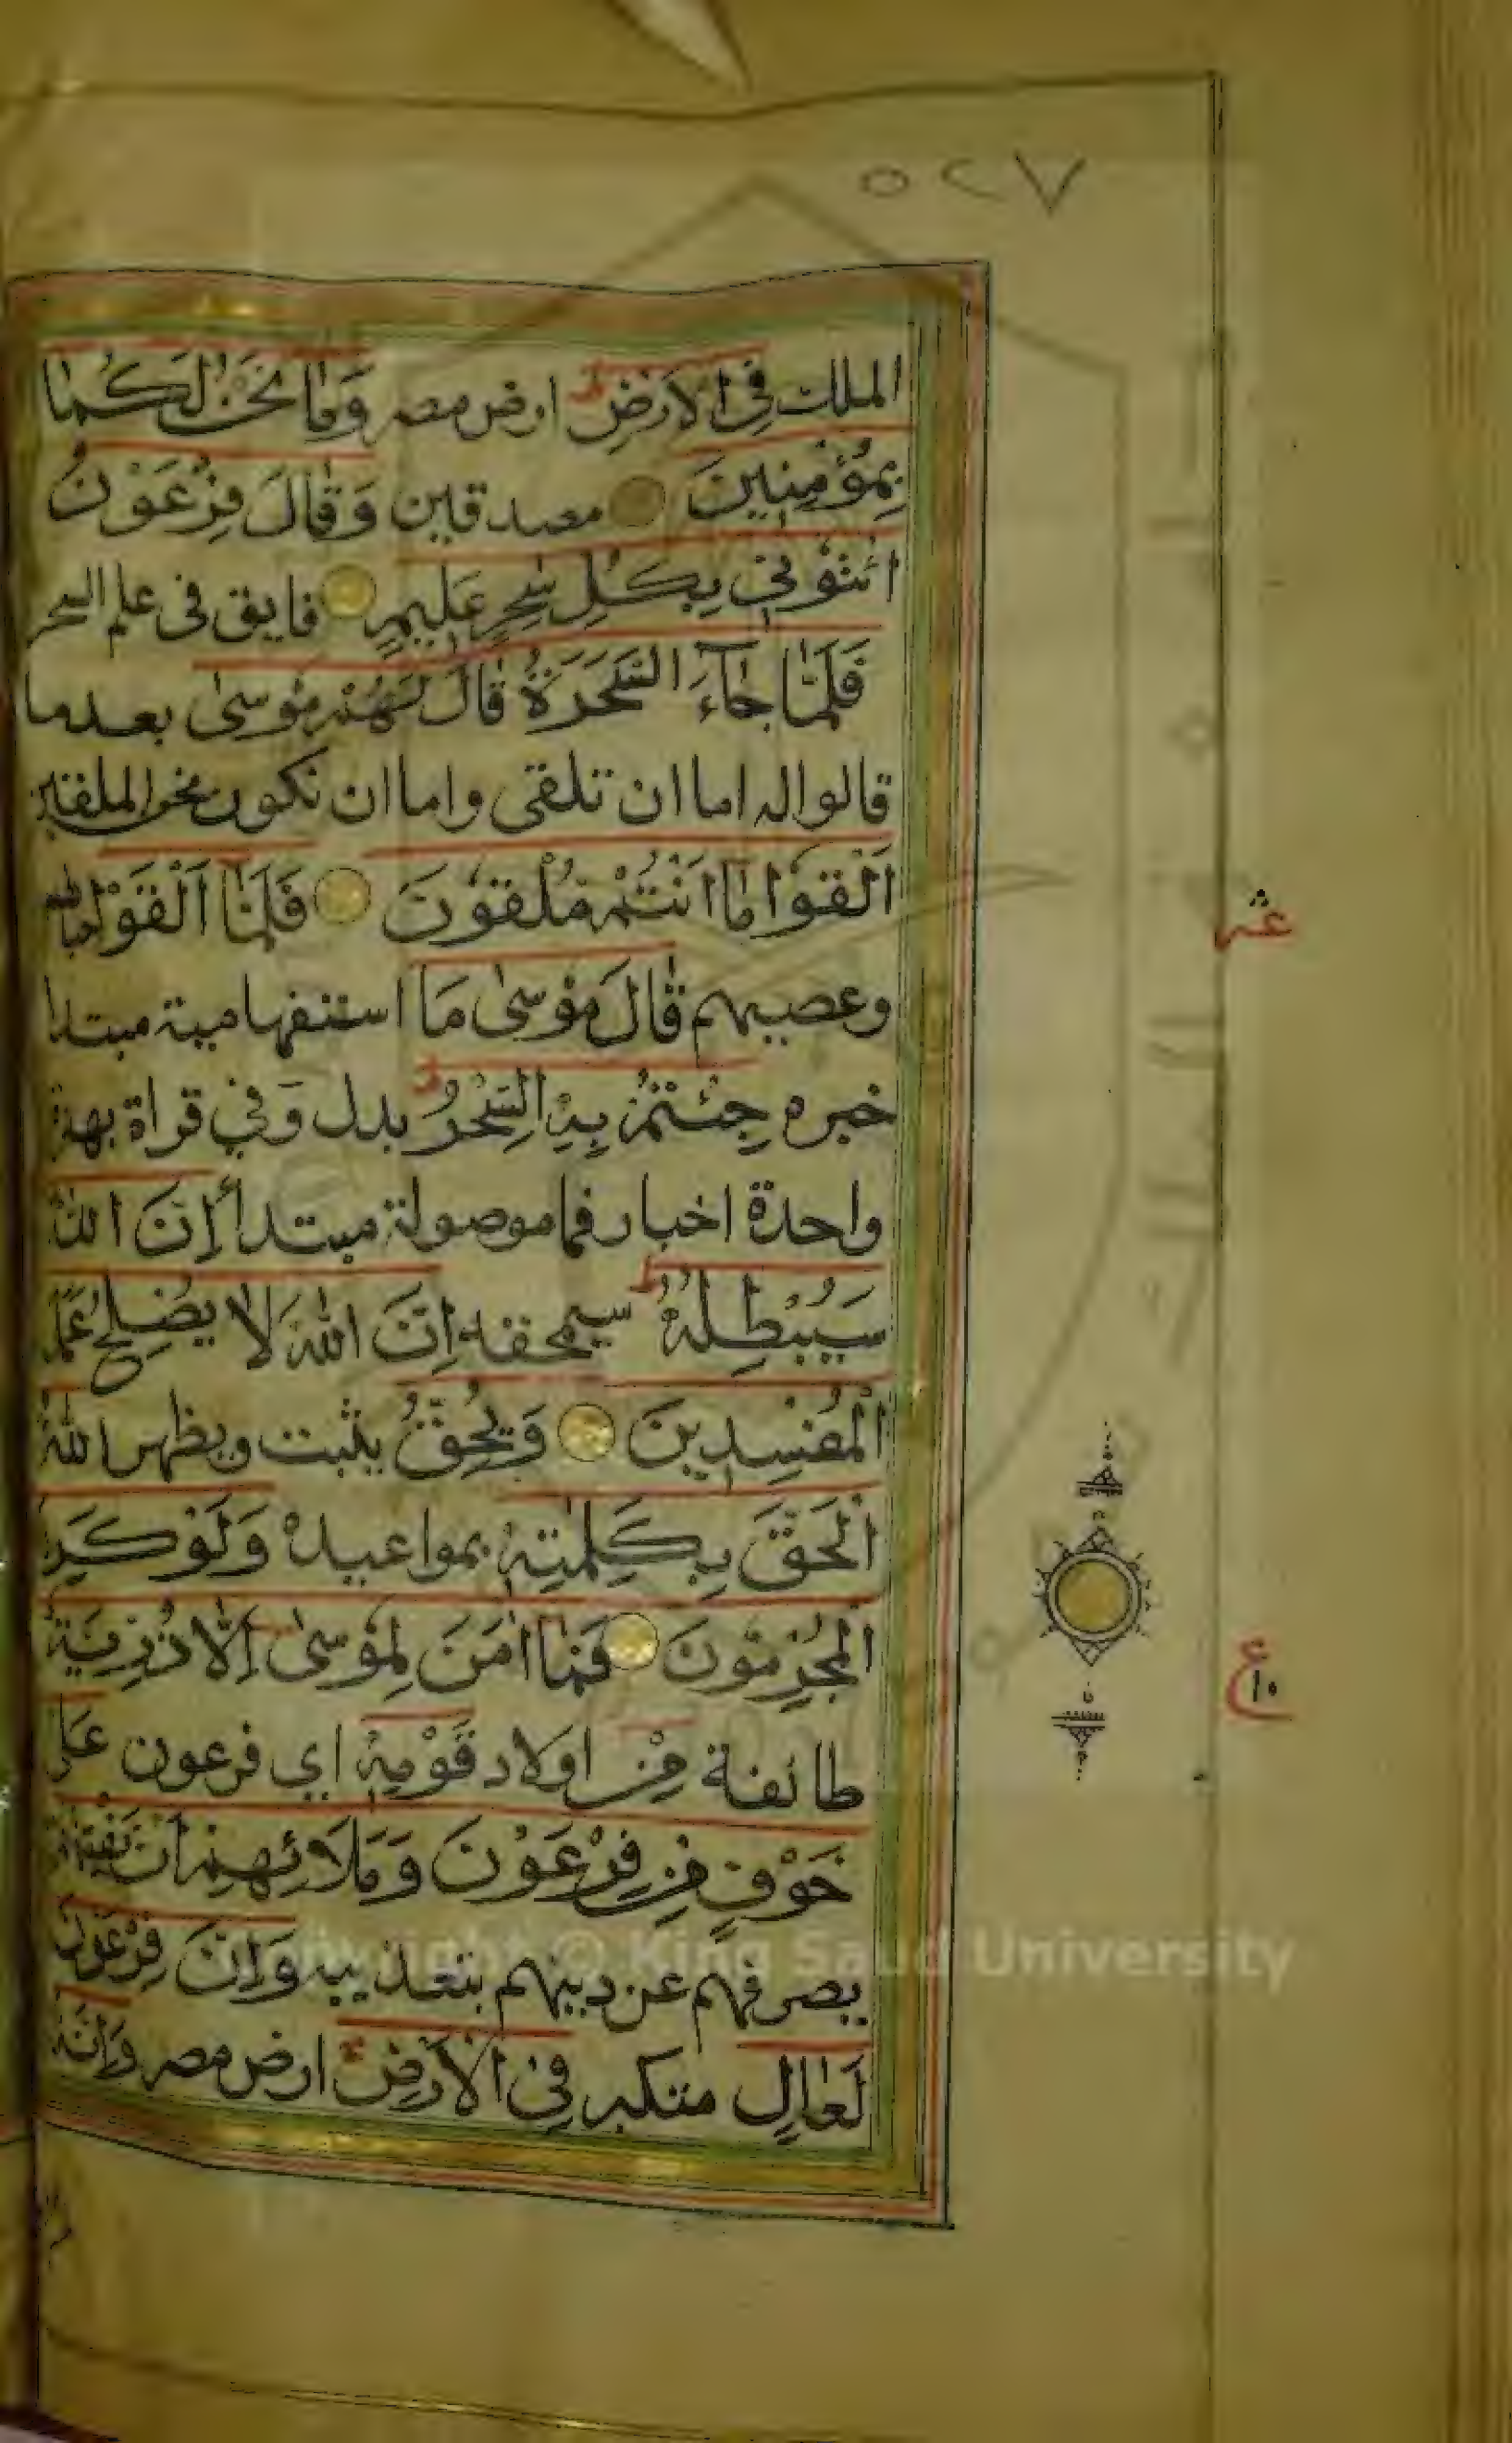 ٥٢٧
الملك فِي الْاَرْضِ ط ارض مصر وَمَا نَحْنُ لَكُمَا
بِمُؤْمِنِينَ مصدقين وَقَالَ فِرْعَوْنُ
ائْتُوْنِي بِكُلِّ سٰحِرٍ عَلِيمٍ فايق فى علم السحر
فَلَمَّا جَاءَ السَّحَرَةُ قَالَ لَهُمْ مُوسٰى بعد ما
قالوا له اما ان تلقى واما ان نكون نحن الملقين
اَلْقُوْا مَا اَنْتُمْ مُلْقُوْنَ فَلَمَّا اَلْقَوْا حبالهم
وعصيهم قَالَ مُوْسٰى مَا استفهامية مبتدا
خبره جِئْتُمْ بِهِ السِّحْرُ ط بدل وَفي قراة بهمزة
واحدة اخبار فما موصولة مبتدأ اِنَّ اللهَ
سَيُبْطِلُهُ ط سيمحقه اِنَّ اللهَ لَا يُصْلِحُ عَمَلَ
الْمُفْسِدِينَ وَيُحِقُّ يثبت ويظهر اللهُ
الْحَقَّ بِكَلِمٰتِهٖ بمواعيده وَلَوْ كَرِهَ
الْمُجْرِمُوْنَ فَمَا اٰمَنَ لِمُوْسٰى اِلَّا ذُرِّيَّةٌ
طائفة مِنْ اولاد قَوْمِهٖ اي فرعون عَلٰى
خَوْفٍ مِنْ فِرْعَوْنَ وَمَلَائِهِمْ اَنْ يَفْتِنَهُمْ
يصرفهم عن دينهم بتعذيبه وَاِنَّ فِرْعَوْنَ
لَعَالٍ متكبر فِي الْاَرْضِ ارض مصر وَاِنَّهُ
عشر
ع ١٠
Copyright © King Saud University